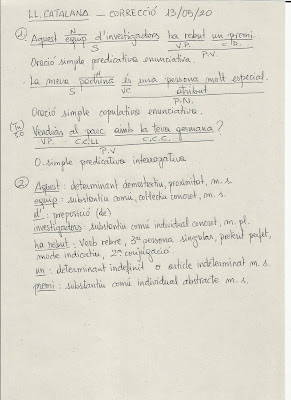 LL. CATALANA - CORRECCIÓ 13/05/20
① Aquest equip d'investigadors ha rebut un premi.
N
S V.P. C.D.
P.V.
Oració simple predicativa enunciativa.
La meva padrina és una persona molt especial.
N
S VC atribut
P.N.
Oració simple copulativa enunciativa.
Vendràs al parc amb la teva germana?
V.P. C.C.LL C.C.C.
P.V
O. simple predicativa interrogativa
② Aquest: determinant demostratiu, proximitat, m. s.
equip: substantiu comú, col·lectiu concret, m. s.
d': preposició (de)
investigadors: substantiu comú individual concret, m. pl.
ha rebut: Verb rebre, 3ª persona singular, pretèrit perfet,
mode indicatiu, 2ª conjugació.
un: determinant indefinit o article indeterminat m. s.
premi: substantiu comú individual abstracte m. s.